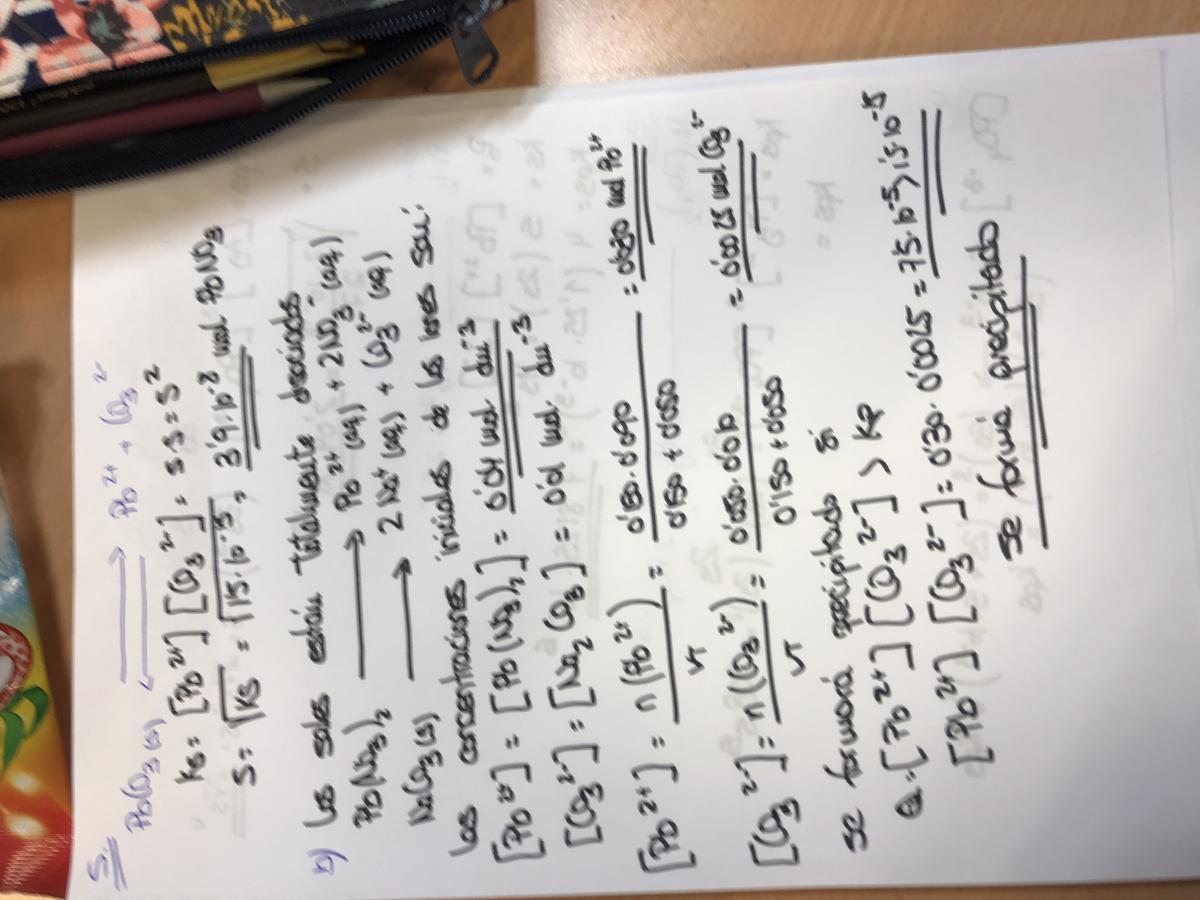 5.
PbCO₃ (s) ⇌ Pb²⁺ + CO₃²⁻
Ks = [Pb²⁺] [CO₃²⁻] = s·s = s²
s = √Ks = √1'5·10⁻¹⁵ = 3'9·10⁻⁸ mol PbNO₃
b) Las sales están totalmente disociadas
Pb(NO₃)₂ → Pb²⁺ (aq) + 2NO₃⁻ (aq)
NaCO₃(s) → 2Na⁺ (aq) + CO₃²⁻ (aq)
Las concentraciones iniciales de los iones son:
[Pb²⁺] = [Pb(NO₃)₂] = 0'04 mol · dm⁻³
[CO₃²⁻] = [Na₂CO₃] = 0'01 mol · dm⁻³
[Pb²⁺] = n(Pb²⁺) / VT = 0'150·0'040 / 0'150 + 0'050 = 0'030 mol Pb²⁺
[CO₃²⁻] = n(CO₃²⁻) / VT = 0'050·0'010 / 0'150 + 0'050 = 0'0025 mol CO₃²⁻
Se formará precipitado si
Q = [Pb²⁺] [CO₃²⁻] > Kp
[Pb²⁺] [CO₃²⁻] = 0'30 · 0'0025 = 7'5·10⁻⁵ > 1'5·10⁻¹⁵
Se forma precipitado